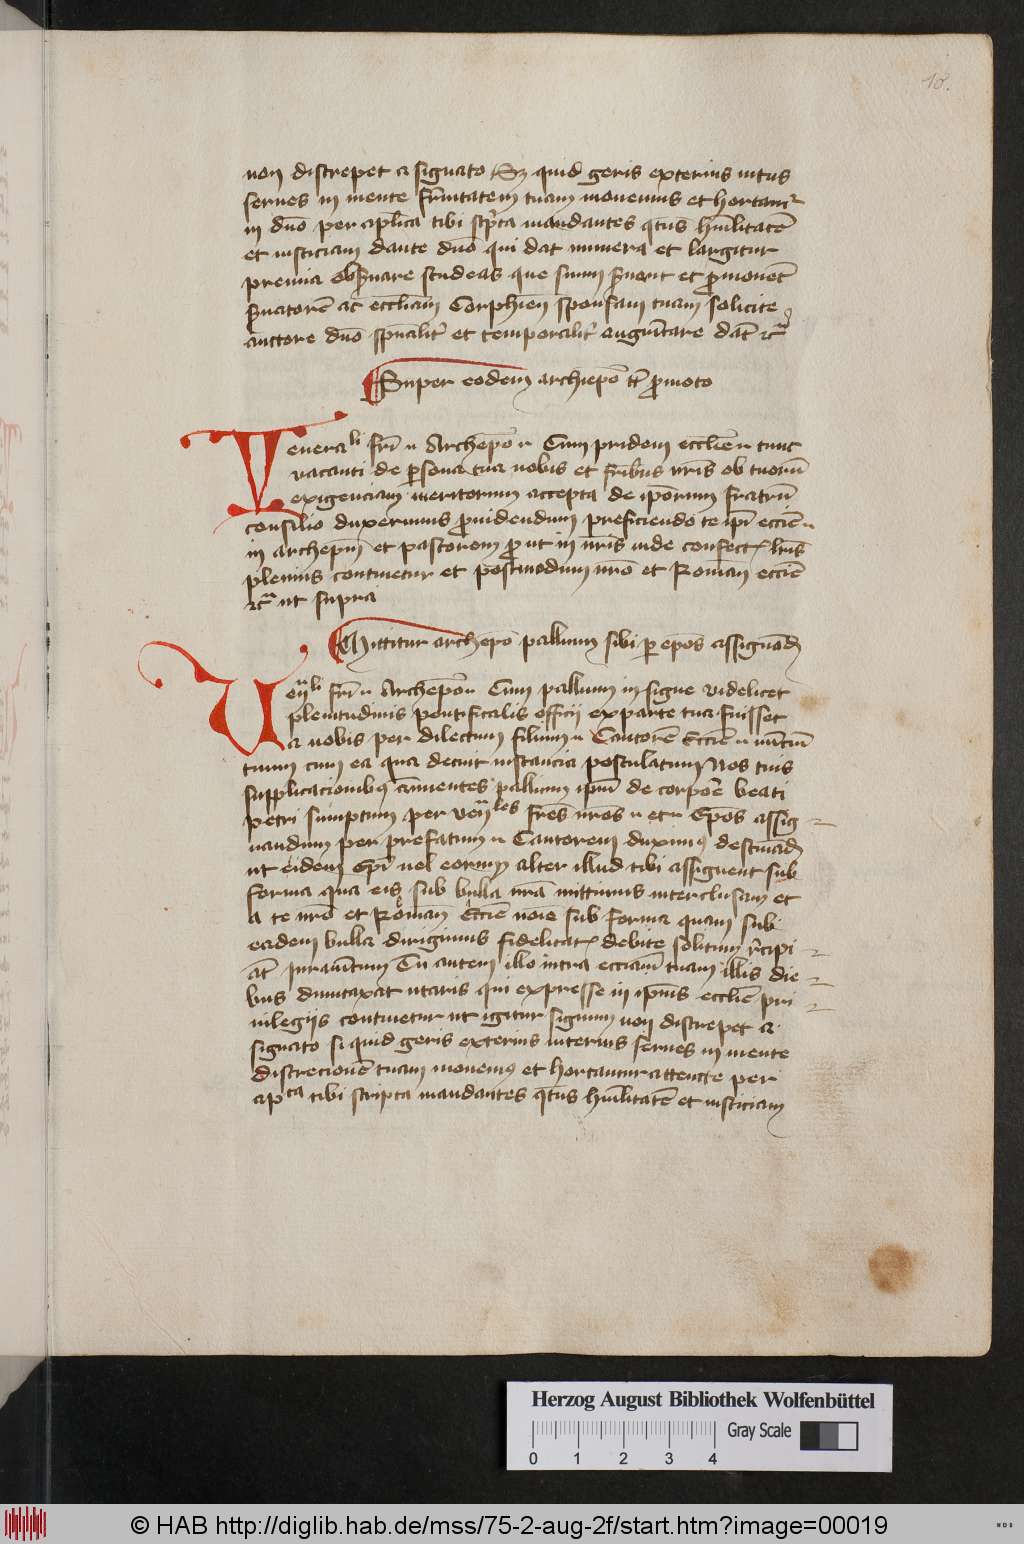 10.
non discrepet a signato Sz quid geris exterius intus
serues in mente frͣnitatem tuam monemus et hortamͬ
in dno per aplica tibi scpta mandantes qtus humilitatē
et iusticiam dante dno qui dat munera et largitur
premia obseruare studeas que suum seruant et promouet
seruatorē ac eccliam Corphien sponsam tuam solicite
auctore dno spualiter et temporaliter augmentare dat etc
Super eodem archiepo promoto
Venerabli fri n Archepo n Cum pridem ecclie n tunc
vacanti de persona tua nobis et fribus nris ob tuorum
exigenciam meritorum accepta de iporum fratrum
consilio duxerimus prouidendum preficiendo te ipi ecclie n
in archepm et pastorem prout in nris inde confectis lris
plenius continetur et postmodum nro et Roman ecclie
etc ut supra
Mittitur archepo pallium sibi per epos assignand
Veli fri n Archepo n Cum pallium insigne videlicet
plenitudinis pontificalis officij ex parte tua fuisset
a nobis per dilectum filium n Cantorē Ecclie n nuntium
tuum cum ea qua decuit instancia postulatum Nos tuis
supplicacionibus annuentes pallium ipm de corpore beati
petri sumptum per veles fres nros n et n Epos assig
nandum per prefatum n Cantorem duximus destinand
ut eidem Epi vel eorum alter illud tibi assignent sub
forma qua eis sub bulla nra mittimus interclusam et
a te nro et Roman Ecclie noie sub forma quam sub
eadem bulla dirigimus fidelitatis debite solitum recipi
at Juramentum Tu autem illo intra eccliam tuam illis die
bus dumtaxat utaris qui expresse in ipius ecclie pri
uilegijs continetur ut igitur signum non discrepet a
signato si quid geris exterius interius serues in mente
discrecionē tuam monemus et hortamur attente per
apca tibi scripta mandantes qtus humilitatē et iusticiam
Herzog August Bibliothek Wolfenbüttel
Gray Scale
0 1 2 3 4
© HAB http://diglib.hab.de/mss/75-2-aug-2f/start.htm?image=00019